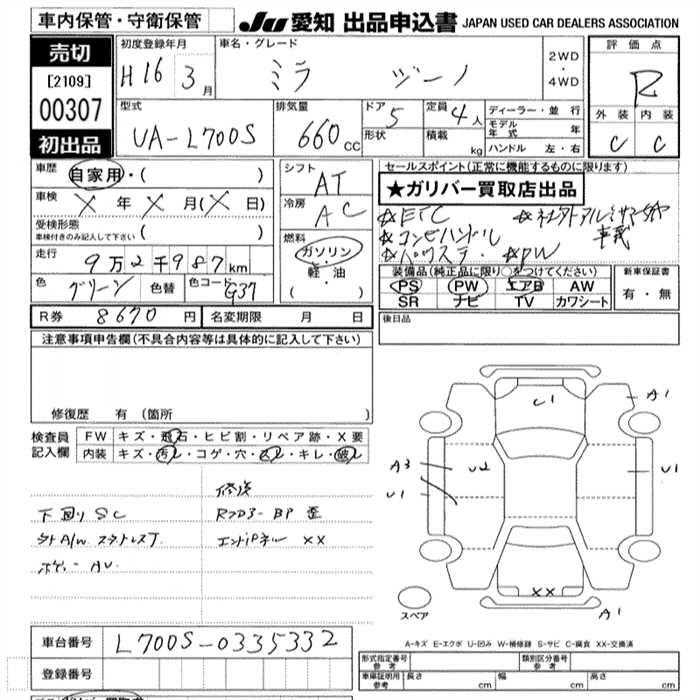 車内保管・守衛保管
JU 愛知 出品申込書 JAPAN USED CAR DEALERS ASSOCIATION
売切
[2109]
00307
初出品
初度登録年月
H16年 3月
車名・グレード
ミラ ジーノ
2WD
・
4WD
評価点
R
外装 内装
C C
型式
UA-L700S
排気量
660 CC
ドア
5
形状
定員
4人
積載
kg
ディーラー・並行
モデル年式 年
ハンドル 左・右
車歴
自家用・( )
車検
X 年 X 月(X 日)
受検形態
車検付きのみ記入して下さい ( )
走行
9万2千987km
色
グリーン
色替
色コード
G37
シフト
AT
冷房
AC
燃料
ガソリン
・
軽・油
( )
セールスポイント(正常に機能するものに限ります)
★ガリバー買取店出品
☆ETC
☆コンビハンドル
☆パワステ ☆PW
装備品(純正品に限り○をつけてください)
PS PW エアB AW
SR ナビ TV カワシート
新車保証書
有・無
R券 8670円
名変期限 月 日
後日品
注意事項申告欄(不具合内容等は具体的に記入して下さい)
修復歴 有(箇所 )
検査員記入欄
FW キズ・飛石・ヒビ割・リペア跡・X要
内装 キズ・汚レ・コゲ・穴・スレ・キレ・破レ
下回りSC
修復
エンドPネル XX
C1
A1
A3
U2
U1
U1
XX
A1
スペア
A-キズ E-エクボ U-凹み W-補修跡 S-サビ C-腐食 XX-交換済
車台番号 L700S-0335332
登録番号
形式指定番号 参考
類別区分番号 参考
車庫証明用 参考
長さ cm 幅 cm 高さ cm